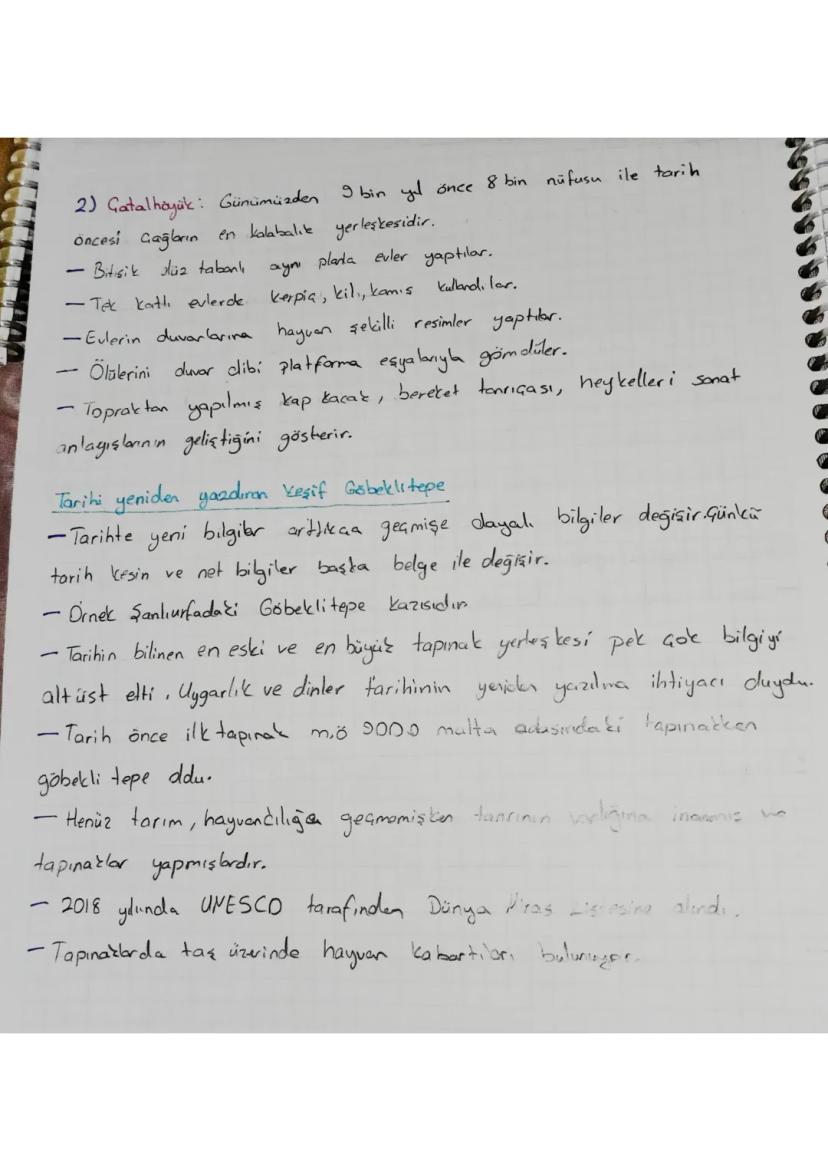 2) Çatalhöyük: Günümüzden 9 bin yıl önce 8 bin nüfusu ile tarih
öncesi çağların en kalabalık yerleşkesidir.
– Bitişik düz tabanlı aynı planda evler yaptılar.
– Tek katlı evlerde kerpiç, kil, kamış kullandılar.
– Evlerin duvarlarına hayvan şekilli resimler yaptılar.
– Ölülerini duvar dibi platforma eşyalarıyla gömdüler.
– Topraktan yapılmış kap kacak, bereket tanrıçası, heykelleri sanat
anlayışlarının geliştiğini gösterir.
Tarihi yeniden yazdıran keşif Göbeklitepe
– Tarihte yeni bilgiler arttıkça geçmişe dayalı bilgiler değişir. Çünkü
tarih kesin ve net bilgiler başka belge ile değişir.
– Örnek Şanlıurfadaki Göbeklitepe kazısıdır
– Tarihin bilinen en eski ve en büyük tapınak yerleşkesi pek çok bilgiyi
altüst etti, Uygarlık ve dinler tarihinin yeniden yazılma ihtiyacı duydu.
– Tarih önce ilk tapınak m.ö 9000 malta adasındaki tapınakken
göbekli tepe oldu.
– Henüz tarım, hayvancılığa geçmemişken tanrının varlığına inanmış ve
tapınaklar yapmışlardır.
– 2018 yılında UNESCO tarafından Dünya Miras Listesine alındı.
– Tapınaklarda taş üzerinde hayvan kabartıları bulunuyor.